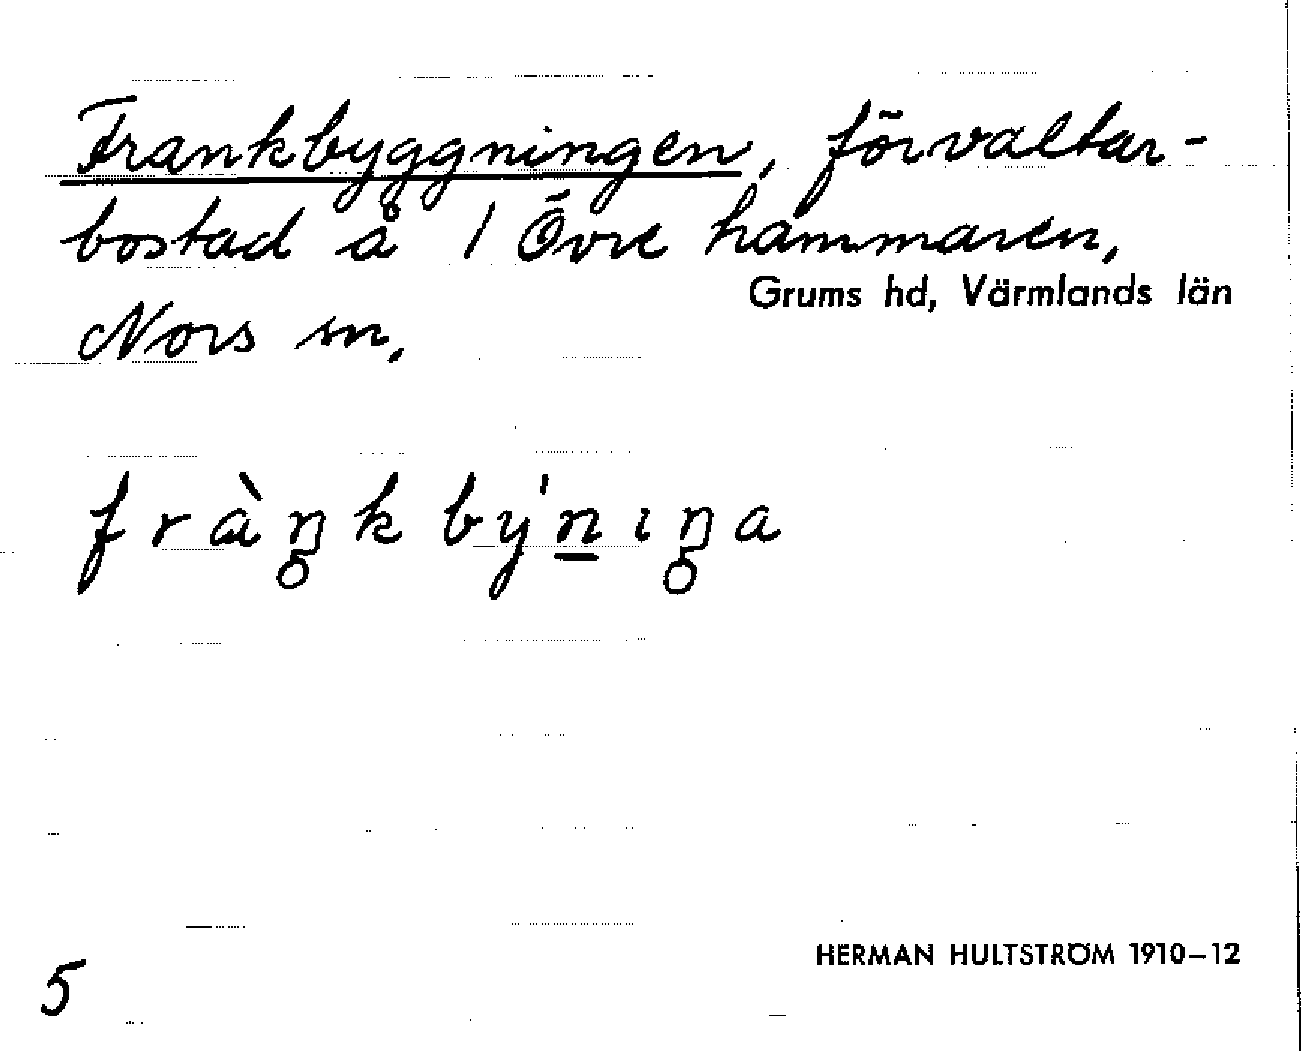 Frankbyggningen, förvaltar-
bostad å 1 Övre hammaren,
Grums hd, Värmlands län
Nors sn,
fràŋk bý'nıŋa
5
HERMAN HULTSTRÖM 1910–12